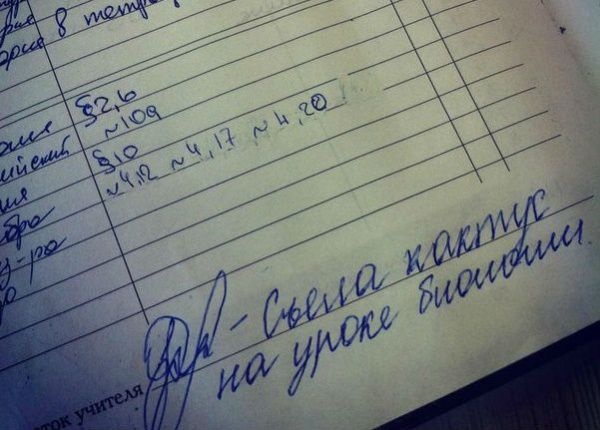 рия 8 тетр
§2,6
ийский №109
§10
№4,12 №4,17 №4,20
- Съела кактус
на уроке биологии
ток учителя